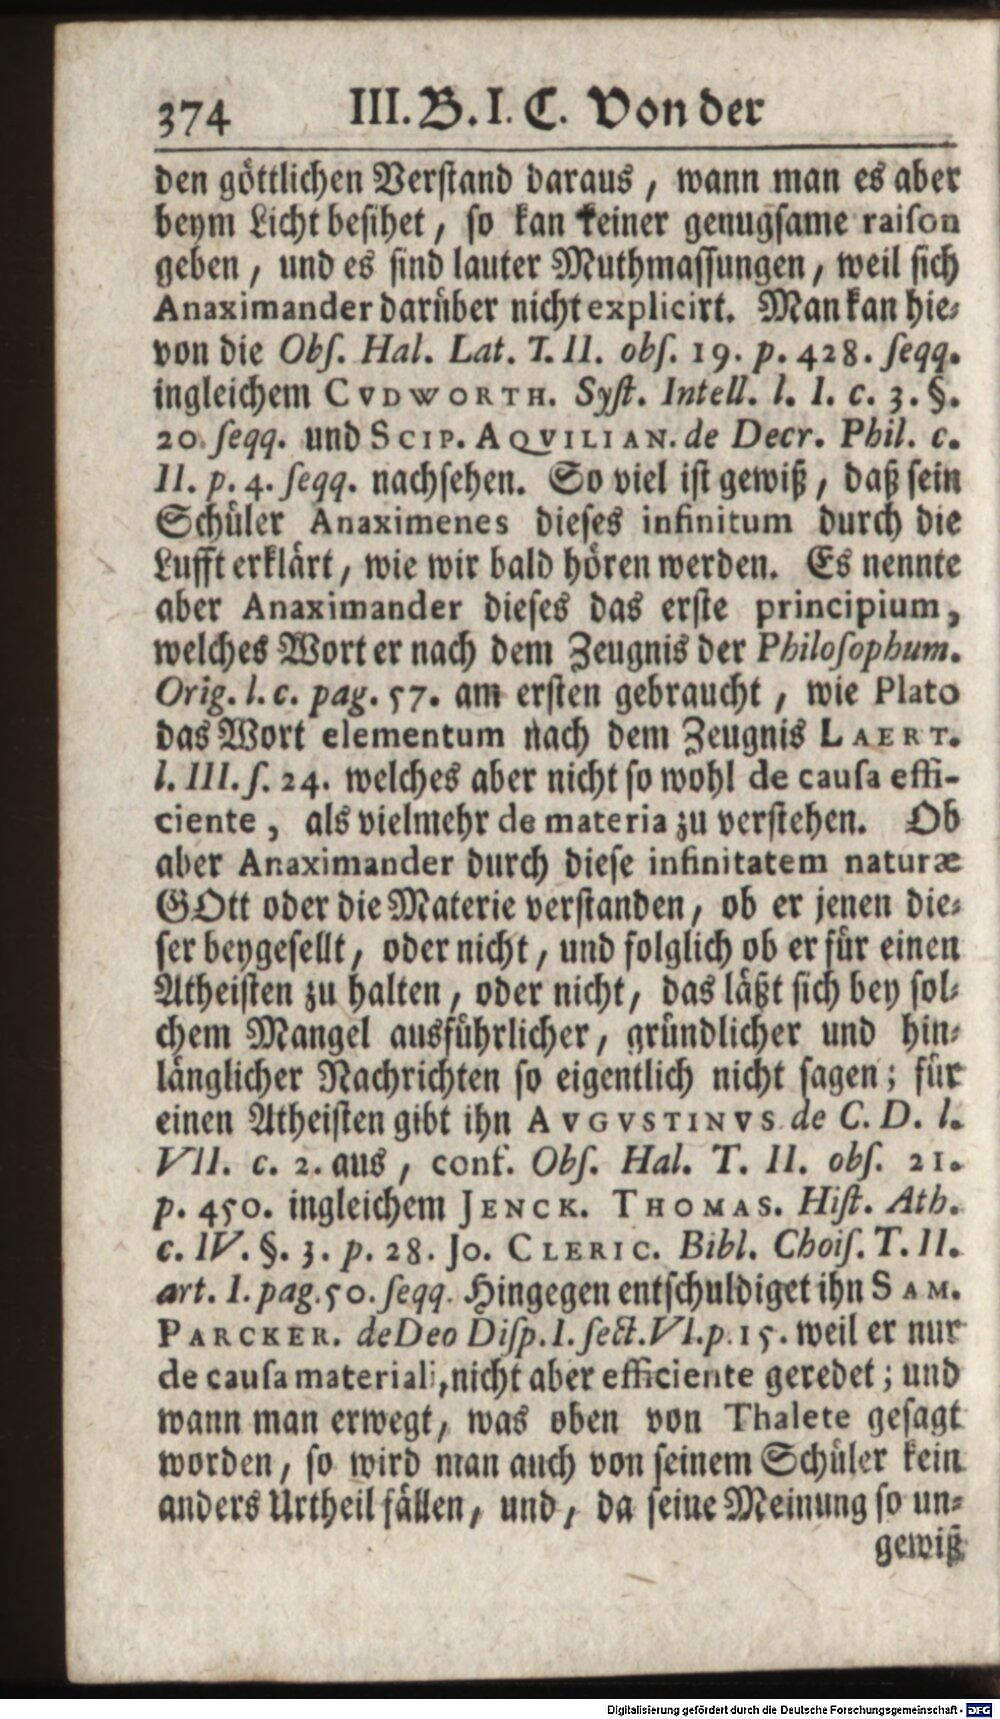 374 III. B. I. C. Von der
den göttlichen Verstand daraus, wann man es aber
beym Licht besihet, so kan keiner genugsame raison
geben, und es sind lauter Muthmassungen, weil sich
Anaximander darüber nicht explicirt. Man kan hie-
von die Obs. Hal. Lat. T. II. obs. 19. p. 428. seqq.
ingleichem CVDWORTH. Syst. Intell. l. I. c. 3. §.
20. seqq. und SCIP. AQVILIAN. de Decr. Phil. c.
II. p. 4. seqq. nachsehen. So viel ist gewiß, daß sein
Schüler Anaximenes dieses infinitum durch die
Lufft erklärt, wie wir bald hören werden. Es nennte
aber Anaximander dieses das erste principium,
welches Wort er nach dem Zeugnis der Philosophum.
Orig. l. c. pag. 57. am ersten gebraucht, wie Plato
das Wort elementum nach dem Zeugnis LAERT.
l. III. s. 24. welches aber nicht so wohl de causa effi-
ciente, als vielmehr de materia zu verstehen. Ob
aber Anaximander durch diese infinitatem naturæ
GOtt oder die Materie verstanden, ob er jenen die-
ser beygesellt, oder nicht, und folglich ob er für einen
Atheisten zu halten, oder nicht, das läßt sich bey sol-
chem Mangel ausführlicher, gründlicher und hin-
länglicher Nachrichten so eigentlich nicht sagen; für
einen Atheisten gibt ihn AVGVSTINVS de C. D. l.
VII. c. 2. aus, conf. Obs. Hal. T. II. obs. 21.
p. 450. ingleichem JENCK. THOMAS. Hist. Ath.
c. IV. §. 3. p. 28. JO. CLERIC. Bibl. Chois. T. II.
art. I. pag. 50. seqq. Hingegen entschuldiget ihn SAM.
PARCKER. de Deo Disp. I. sect. VI. p. 15. weil er nur
de causa materiali, nicht aber efficiente geredet; und
wann man erwegt, was oben von Thalete gesagt
worden, so wird man auch von seinem Schüler kein
anders Urtheil fällen, und, da seine Meinung so un-
gewiß
Digitalisierung gefördert durch die Deutsche Forschungsgemeinschaft - DFG